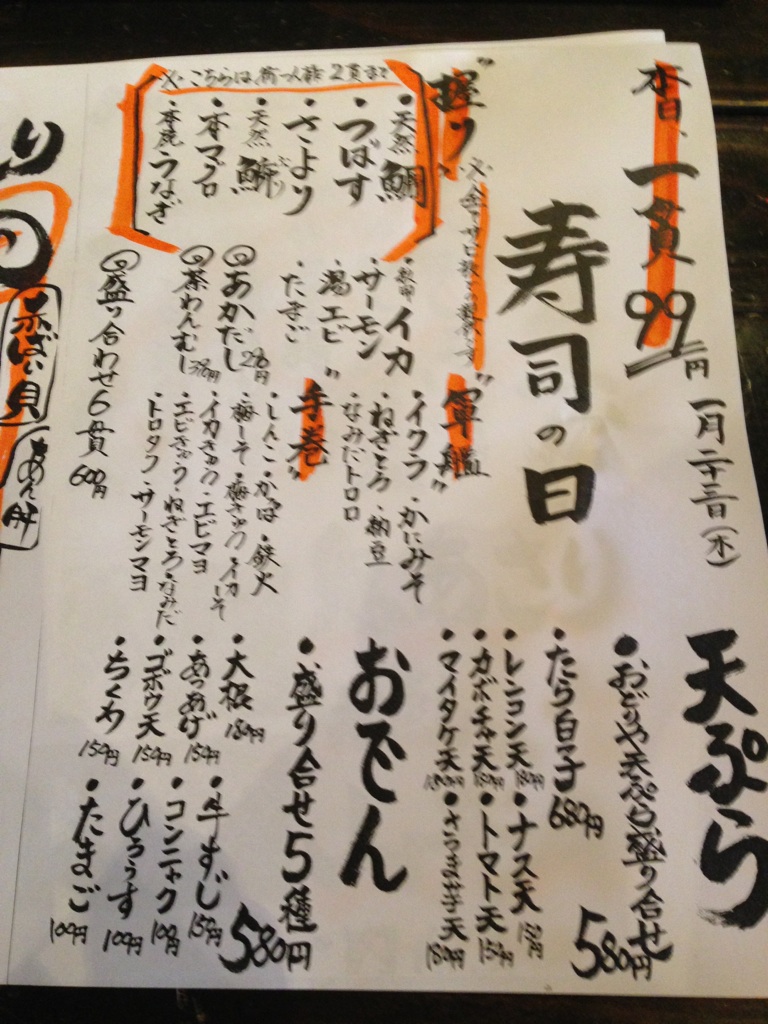 本日、一貫99円
一月二十三日（木）
寿司の日
"握り"
・天然鯛
・つばす
・さより
・天然鰤
・本マグロ
・うなぎ
・イカ
・サーモン
・湯エビ
・たまご
"軍艦"
・イクラ・かにみそ
・ねぎとろ・納豆
・なみだトロロ
"手巻"
・しんこ・かっぱ・鉄火
・梅しそ・梅きゅう・イカしそ
・イカきゅう・エビマヨ
・エビきゅう・ねぎとろ・なみだ
・トロタク・サーモンマヨ
あかだし
茶わんむし
盛り合わせ6貫 600円
天ぷら
・おどりや天ぷら盛り合せ 580円
・たら白子 680円
・レンコン天 180円
・ナス天 150円
・カボチャ天 180円
・トマト天 150円
・マイタケ天 180円
・さつま芋天 180円
おでん
・盛り合せ5種 580円
・大根 180円
・牛すじ 150円
・あつあげ 150円
・コンニャク 100円
・ゴボウ天 150円
・ひろうす 100円
・ちくわ 150円
・たまご 100円
り
赤ばい貝
あん肝